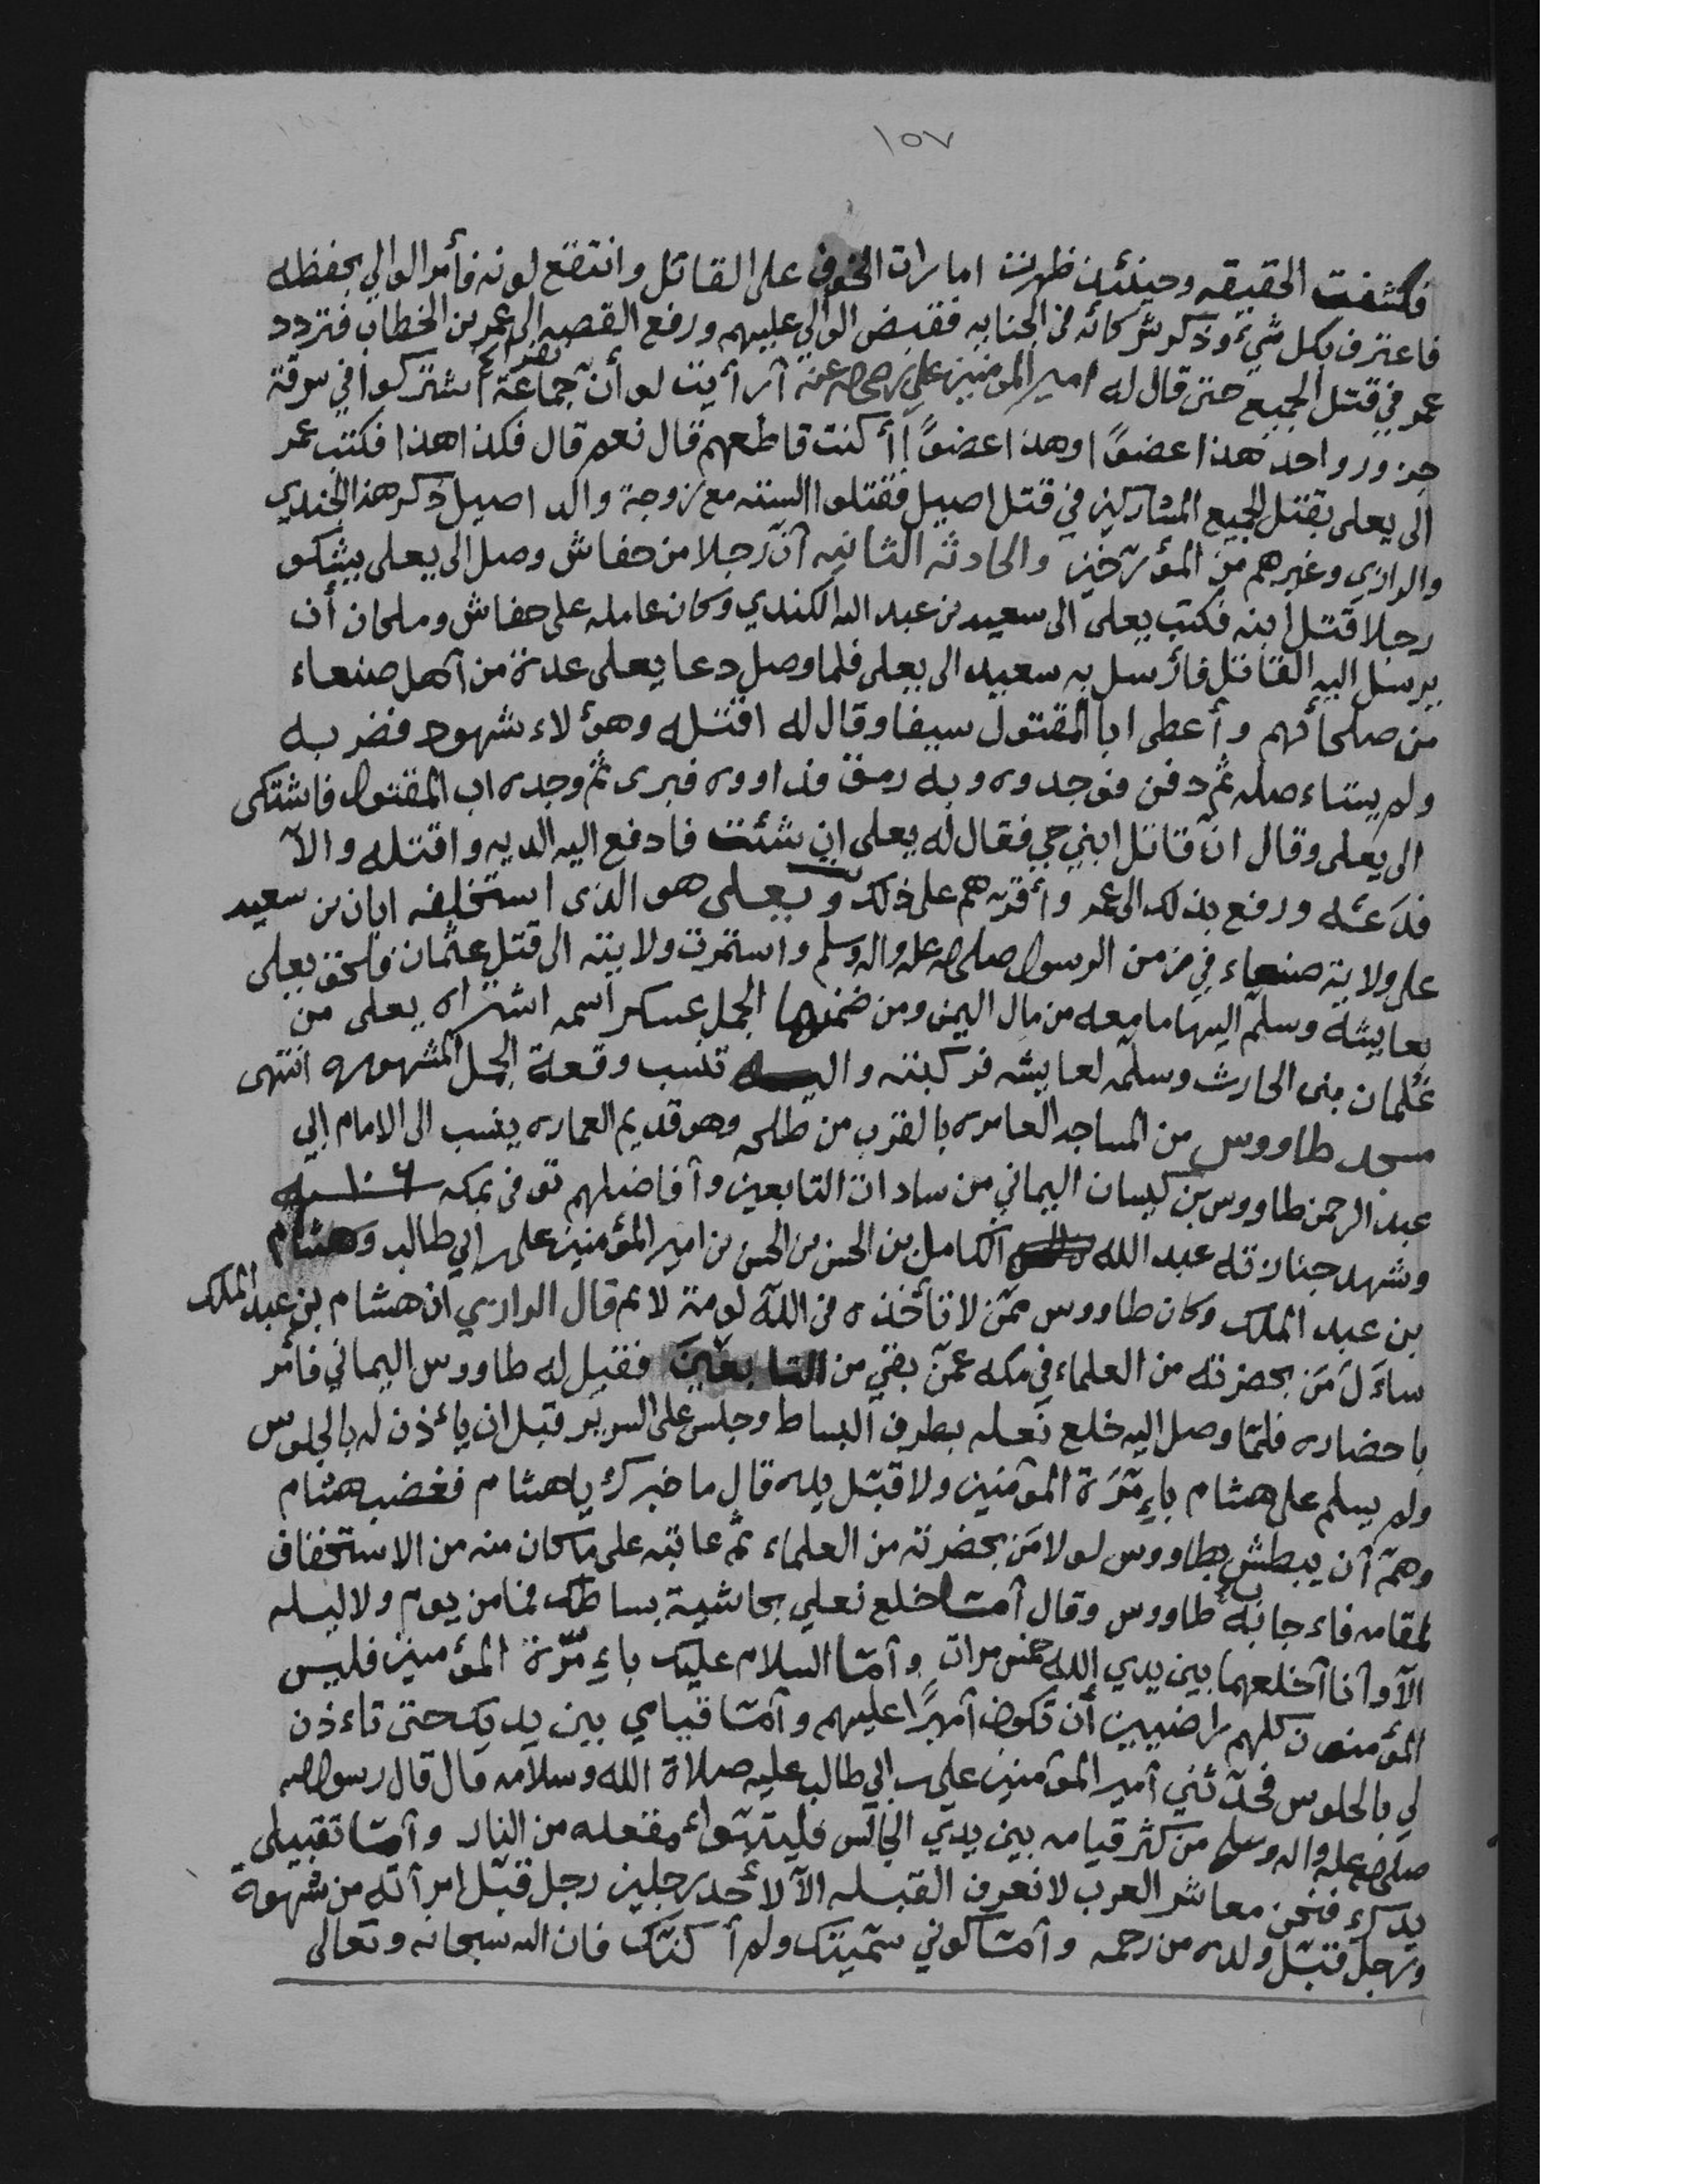 ١٥٧
فكشفت الحقيقه وحينئذ ظهرت امارات الخوف على القاتل وانتقع لونه فأمر الوالي بحفظه
فاعترف بكل شيء وذكر شركائه في الجنايه فقبض الوالي عليهم ورفع القصه الى عمر بن الخطاب فتردد
عمر في قتل الجميع حتى قال له امير المؤمنين علي رضي الله عنه أرأيت لو أن جماعة اشتركوا في سرقة
جزور واحد هذا عضوًا وهذا عضوًا أكنت قاطعهم قال نعم قال فكذا هذا فكتب عمر
الى يعلى بقتل الجميع المشاركين في قتل اصيل فقتلوا الستة مع زوجة والد اصيل ذكر هذا الجندي
والرازي وغيرهم من المؤرخين والحادثه الثانيه أن رجلا من حفاش وصل الى يعلى يشكو
رجلا قتل ابنه فكتب يعلى الى سعيد بن عبد الله الكندي وكان عامله على حفاش وملحان أن
يرسل اليه القاتل فأرسل به سعيد الى يعلى فلما وصل دعا يعلى عدة من أهل صنعاء
من صلحائهم وأعطى ابا المقتول سيفا وقال له اقتله وهؤلاء شهود فضربه
ولم يستاءصله ثم دفن فوجدوه وبه رمق فداووه فبرى ثم وجده اب المقتول فاشتكى
الى يعلى وقال ان قاتل ابني حي فقال له يعلى ان شئت فادفع اليه الديه واقتله والآ
فدعه ورفع بذلك الى عمر وأقرهم على ذلك ويعلى هو الذى استخلفه ابان بن سعيد
على ولاية صنعاء في زمن الرسول صلى الله عليه واله وسلم واستمرت ولايته الى قتل عثمان فلحق يعلى
بعايشة وسلم اليها ما معه من مال اليمن ومن ضمنها الجمل عسكر اسمه اشتراه يعلى من
غلمان بنى الحارث وسلمه لعايشه فركبته واليه تنسب وقعة الجمل المشهوره انتهى
مسجد طاووس من المساجد العامره بالقرب من طلحه وهو قديم العماره ينسب الى الامام ابي
عبد الرحمن طاووس بن كيسان اليماني من سادات التابعين وأفاضلهم توفى بمكه سنه ١٠٦
وشهد جنازته عبد الله الكامل بن الحسن بن الحسن بن امير المؤمنين على بن ابي طالب وهشام
بن عبد الملك وكان طاووس ممن لا تأخذه في الله لومة لائم قال الرازي ان هشام بن عبد الملك
ساءَلَ مَن بحضرته من العلماء في مكه عمن بقي من التابعين فقيل له طاووس اليماني فأمر
باحضاره فلما وصل اليه خلع نعله بطرف البساط وجلس على السرير قبل ان ياءذن له بالجلوس
ولم يسلم على هشام باءمرة المؤمنين ولا قبل يده قال ما خبرك ياهشام فغضب هشام
وهم أن يبطش بطاووس لولا مَن بحضرته من العلماء ثم عاتبه على ما كان منه من الاستخفاف
لمقامه فاءجابه طاووس وقال أما خلع نعلي بحاشية بساطك فما من يوم ولا ليله
الآ وأنا أخلعهما بين يدي الله خمس مرات وأما السلام عليك باءمرة المؤمنين فليس
المؤمنون كلهم راضيين أن تكون أميرًا عليهم وأما قيامي بين يديك حتى تاءذن
لي بالجلوس فحدثني أمير المؤمنين على بن ابي طالب عليه صلاة الله وسلامه قال قال رسول الله
صلى الله عليه واله وسلم من كثر قيامه بين يدي الجالس فليتبواء مقعده من النار وأما تقبيلى
يدك فنحن معاشر العرب لا نعرف القبله الآ لأحد رجلين رجل قبل امرأته من شهوة
ورجل قبل ولده من رحمه وأما كوني سميتك ولم أكنك فان الله سبحانه وتعالى